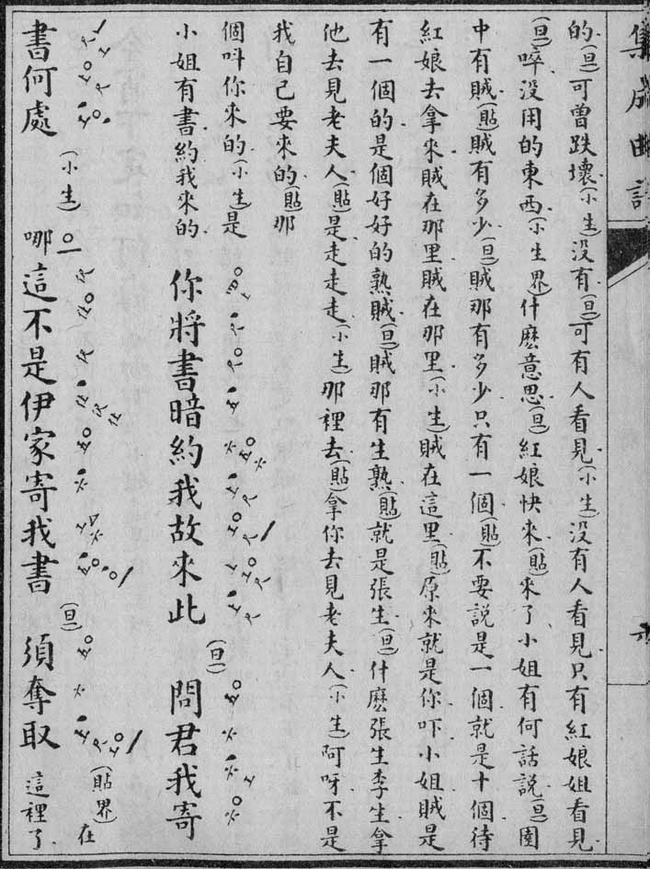 集成曲譜
的(旦)可曾跌壞(小生)没有(旦)可有人看見(小生)没有人看見只有紅娘姐看見
(旦)啐没用的東西(小生界)什麽意思(旦)紅娘快來(貼)來了小姐有何話說(旦)園
中有賊(貼)賊有多少(旦)賊那有多少只有一個(貼)不要説是一個就是十個待
紅娘去拿來賊在那里賊在那里(小生)賊在這里(貼)原來就是你吓小姐賊是
有一個的是個好好的熟賊(旦)賊那有生熟(貼)就是張生(旦)什麽張生李生拿
他去見老夫人(貼)是走走走(小生)那裡去(貼)拿你去見老夫人(小生)阿呀不是
我自己要來的(貼)那
個呌你來的(小生)是
小姐有書約我來的
你將書暗約我故來此(旦)問君我寄
書何處(小生)哪這不是伊家寄我書(旦)須奪取(貼界)在
這裡了